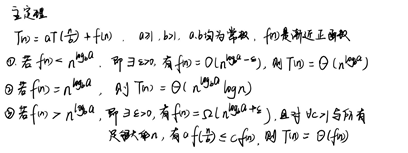 主定理
T(n) = aT(n/b) + f(n), a≥1, b>1, a.b均为常数, f(n)是渐近正函数
① 若 f(n) < n^{log_b a}, 即 ∃ε>0, 有 f(n) = O(n^{log_b a - ε}), 则 T(n) = Θ(n^{log_b a})
② 若 f(n) = n^{log_b a}, 则 T(n) = Θ(n^{log_b a} log n)
③ 若 f(n) > n^{log_b a}, 即 ∃ε>0, 有 f(n) = Ω(n^{log_b a + ε}), 且对 ∀c>1 与所有
足够大的n, 有 a f(n/b) ≤ c f(n), 则 T(n) = Θ(f(n))